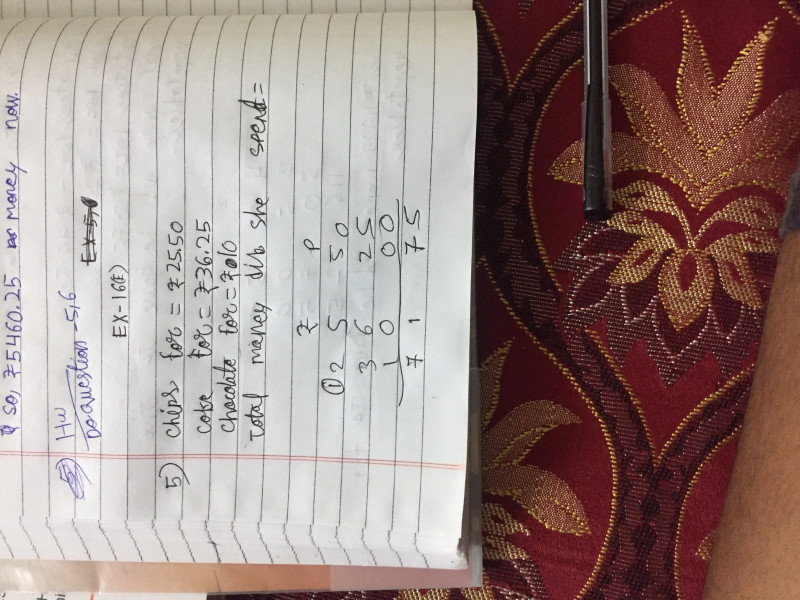 so, ₹5460.25 money now.
HW
Do question - 5,6
EX-16(E)
5) Chips for = ₹25.50
Coke for = ₹36.25
Chocolate for = ₹10
Total money did she spend =
₹ P
① 2 5 50
3 6 25
1 0 00
7 1 75